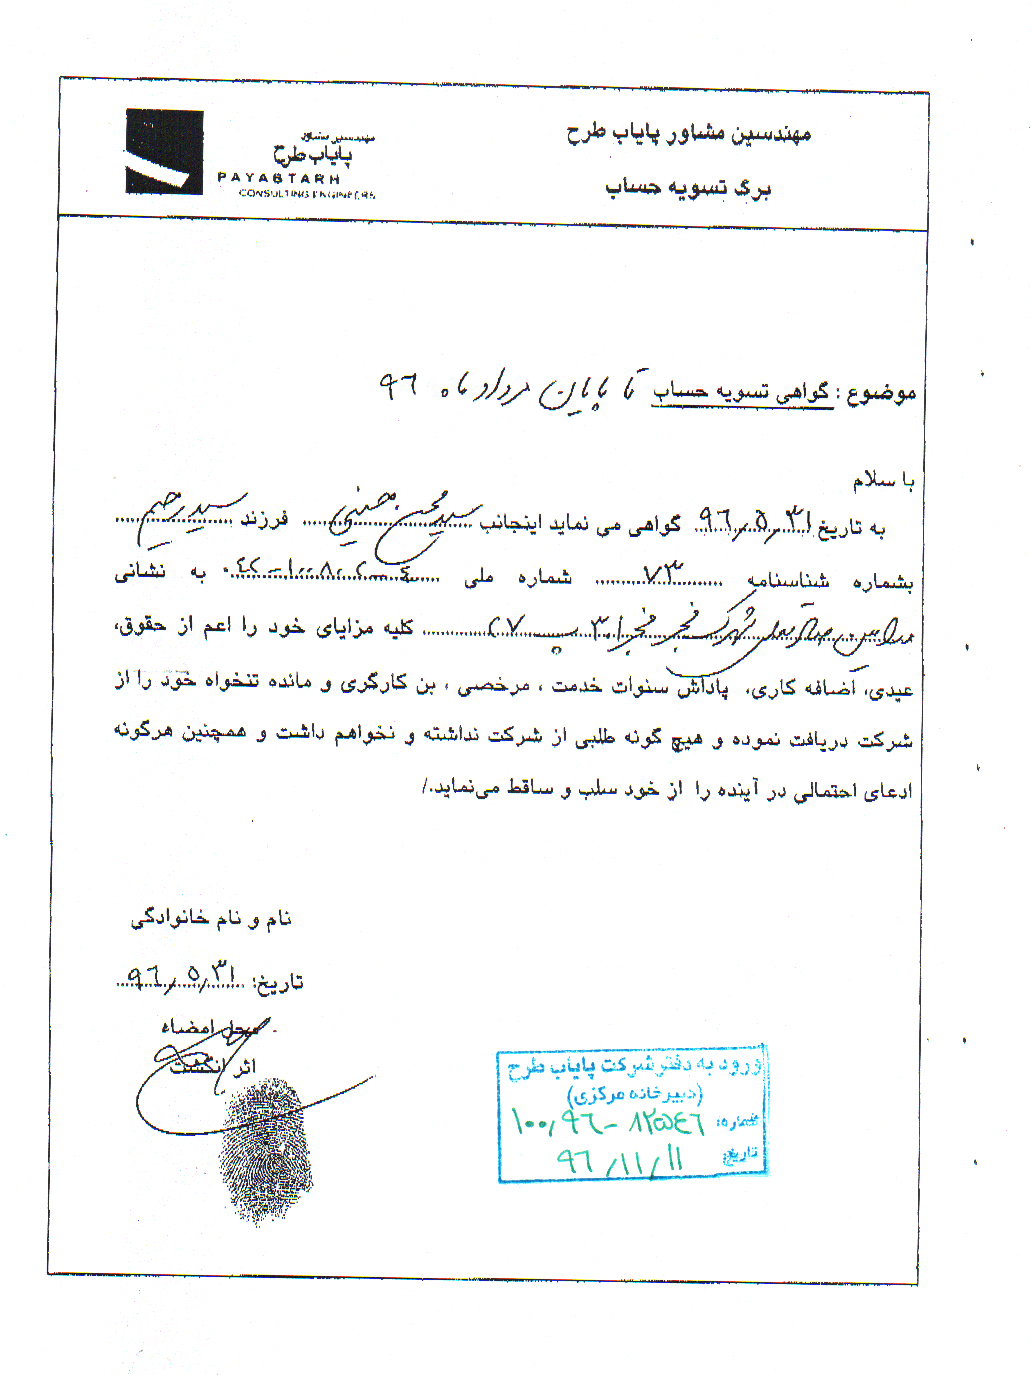 مهندسین مشاور پایاب طرح
برگ تسویه حساب
مهندسین مشاور
پایاب طرح
PAYABTARH
CONSULTING ENGINEERS
موضوع : گواهی تسویه حساب تا پایان مرداد ماه ۹۶
با سلام
به تاریخ ۹۶/۵/۳۱ گواهی می نماید اینجانب سید محسن حسینی فرزند سید رحیم
بشماره شناسنامه ۷۳ شماره ملی به نشانی
شهرک فجر فجر کلیه مزایای خود را اعم از حقوق،
عیدی، اضافه کاری، پاداش سنوات خدمت ، مرخصی ، بن کارگری و مانده تنخواه خود را از
شرکت دریافت نموده و هیچ گونه طلبی از شرکت نداشته و نخواهم داشت و همچنین هرگونه
ادعای احتمالی در آینده را از خود سلب و ساقط می‌نماید./
نام و نام خانوادگی
تاریخ: ۹۶/۵/۳۱
محل امضاء
اثر انگشت
ورود به دفتر شرکت پایاب طرح
(دبیرخانه مرکزی)
شماره: ۱۰۰/۹۶-۸۲۵۴۶
تاریخ: ۹۶/۱۱/۱۱